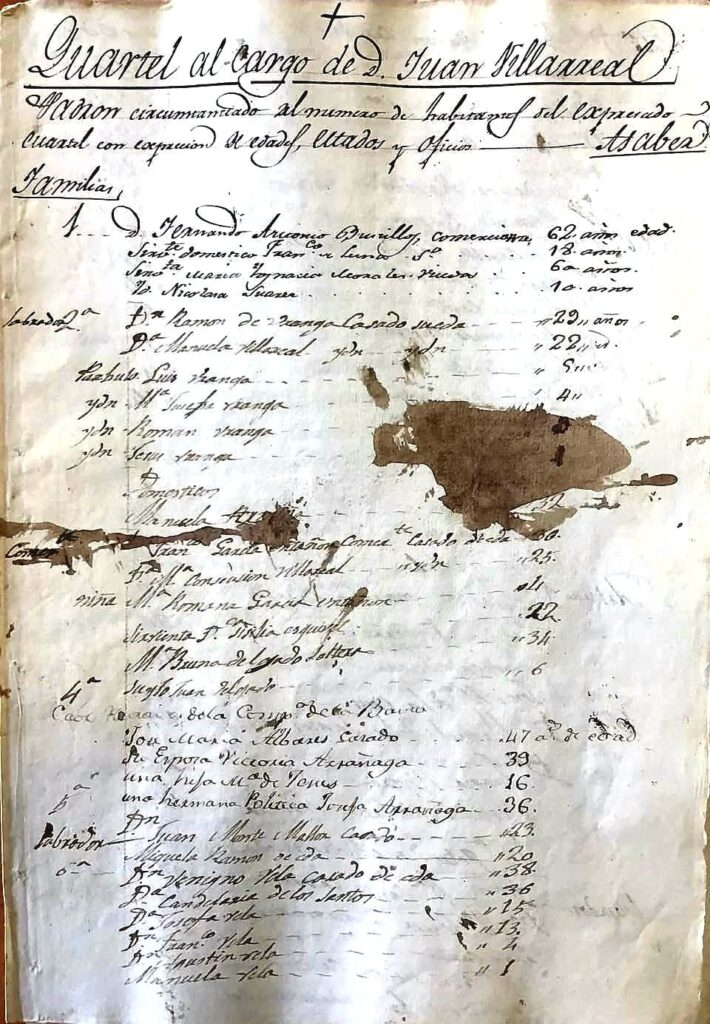 Quartel al cargo de D. Juan Villarreal
Padron circunstanciado del numero de habitantes del expresado
cuartel con exprecion de edades, estados y oficios Asaber
Familias,
1 D. Fernando Antonio Burillo, comerciante, 62 años edad.
Sirvte domestico Franco Luna 18 años
Sirvta Maria Ygnacia Morales viuda 60 años.
Yd. Nicolasa Suares 10 años
labrador 2a Dn Ramon de Uranga Casado 29 años
Da Manuela Villareal ydn ydn 22 id.
Parbulo Luis Uranga 5
ydn Ma Josefa Uranga 4
ydn Roman Uranga
ydn Jesus Uranga
Domesticos
Manuela 32
Comerte Franco Garcia Comerte Casado 30
Da Ma Concepcion Villareal ydn 25
niña Ma Romana Garcia 4
sirvienta Esquivel 22
Ma Bruna delgado soltera 34
Juan delgado 6
4a
Jose Maria Albares Casado 47 as de edad
Su Esposa Victoria Arrañaga 39
una hija Ma de Jesus 16
5a una hermana Politica Josefa Arrañaga 36.
labrador Dn Juan Monte Mallor Casado 23
Miguela Ramon de eda 20
6a Dn Venigno Vela Casado de eda 38
Da Candelaria de los Santos 36
Da Josefa Vela 15
Dn Franco Vela 13
Dn Agustin Vela 4
Manuela Vela 1